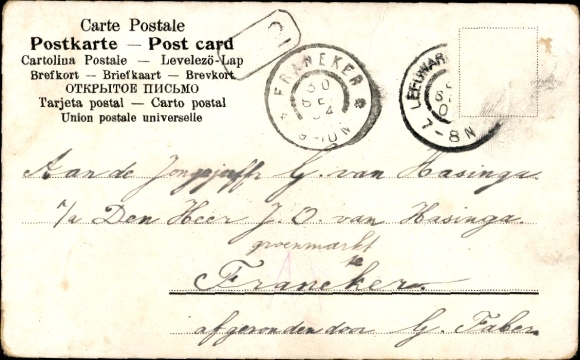 Carte Postale
Postkarte — Post card
Cartolina Postale — Levelező-Lap
Brefkort — Briefkaart — Brevkort
ОТКРЫТОЕ ПИСЬМО
Tarjeta postal — Carto postal
Union postale universelle
FRANEKER
30
SEP
04
9-10N
LEEUWAR
7-8N
Aan de Jongejuffr G. van Hasinga.
p/a Den Heer J. O. van Hasinga.
groenmarkt
te
Franeker.
afgezonden door G. Faber